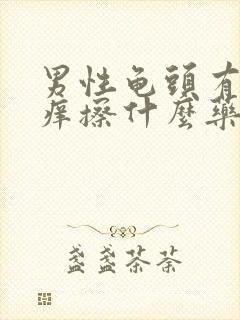 男性龟頭有
痒擦什麼藥
盏盏茶茶